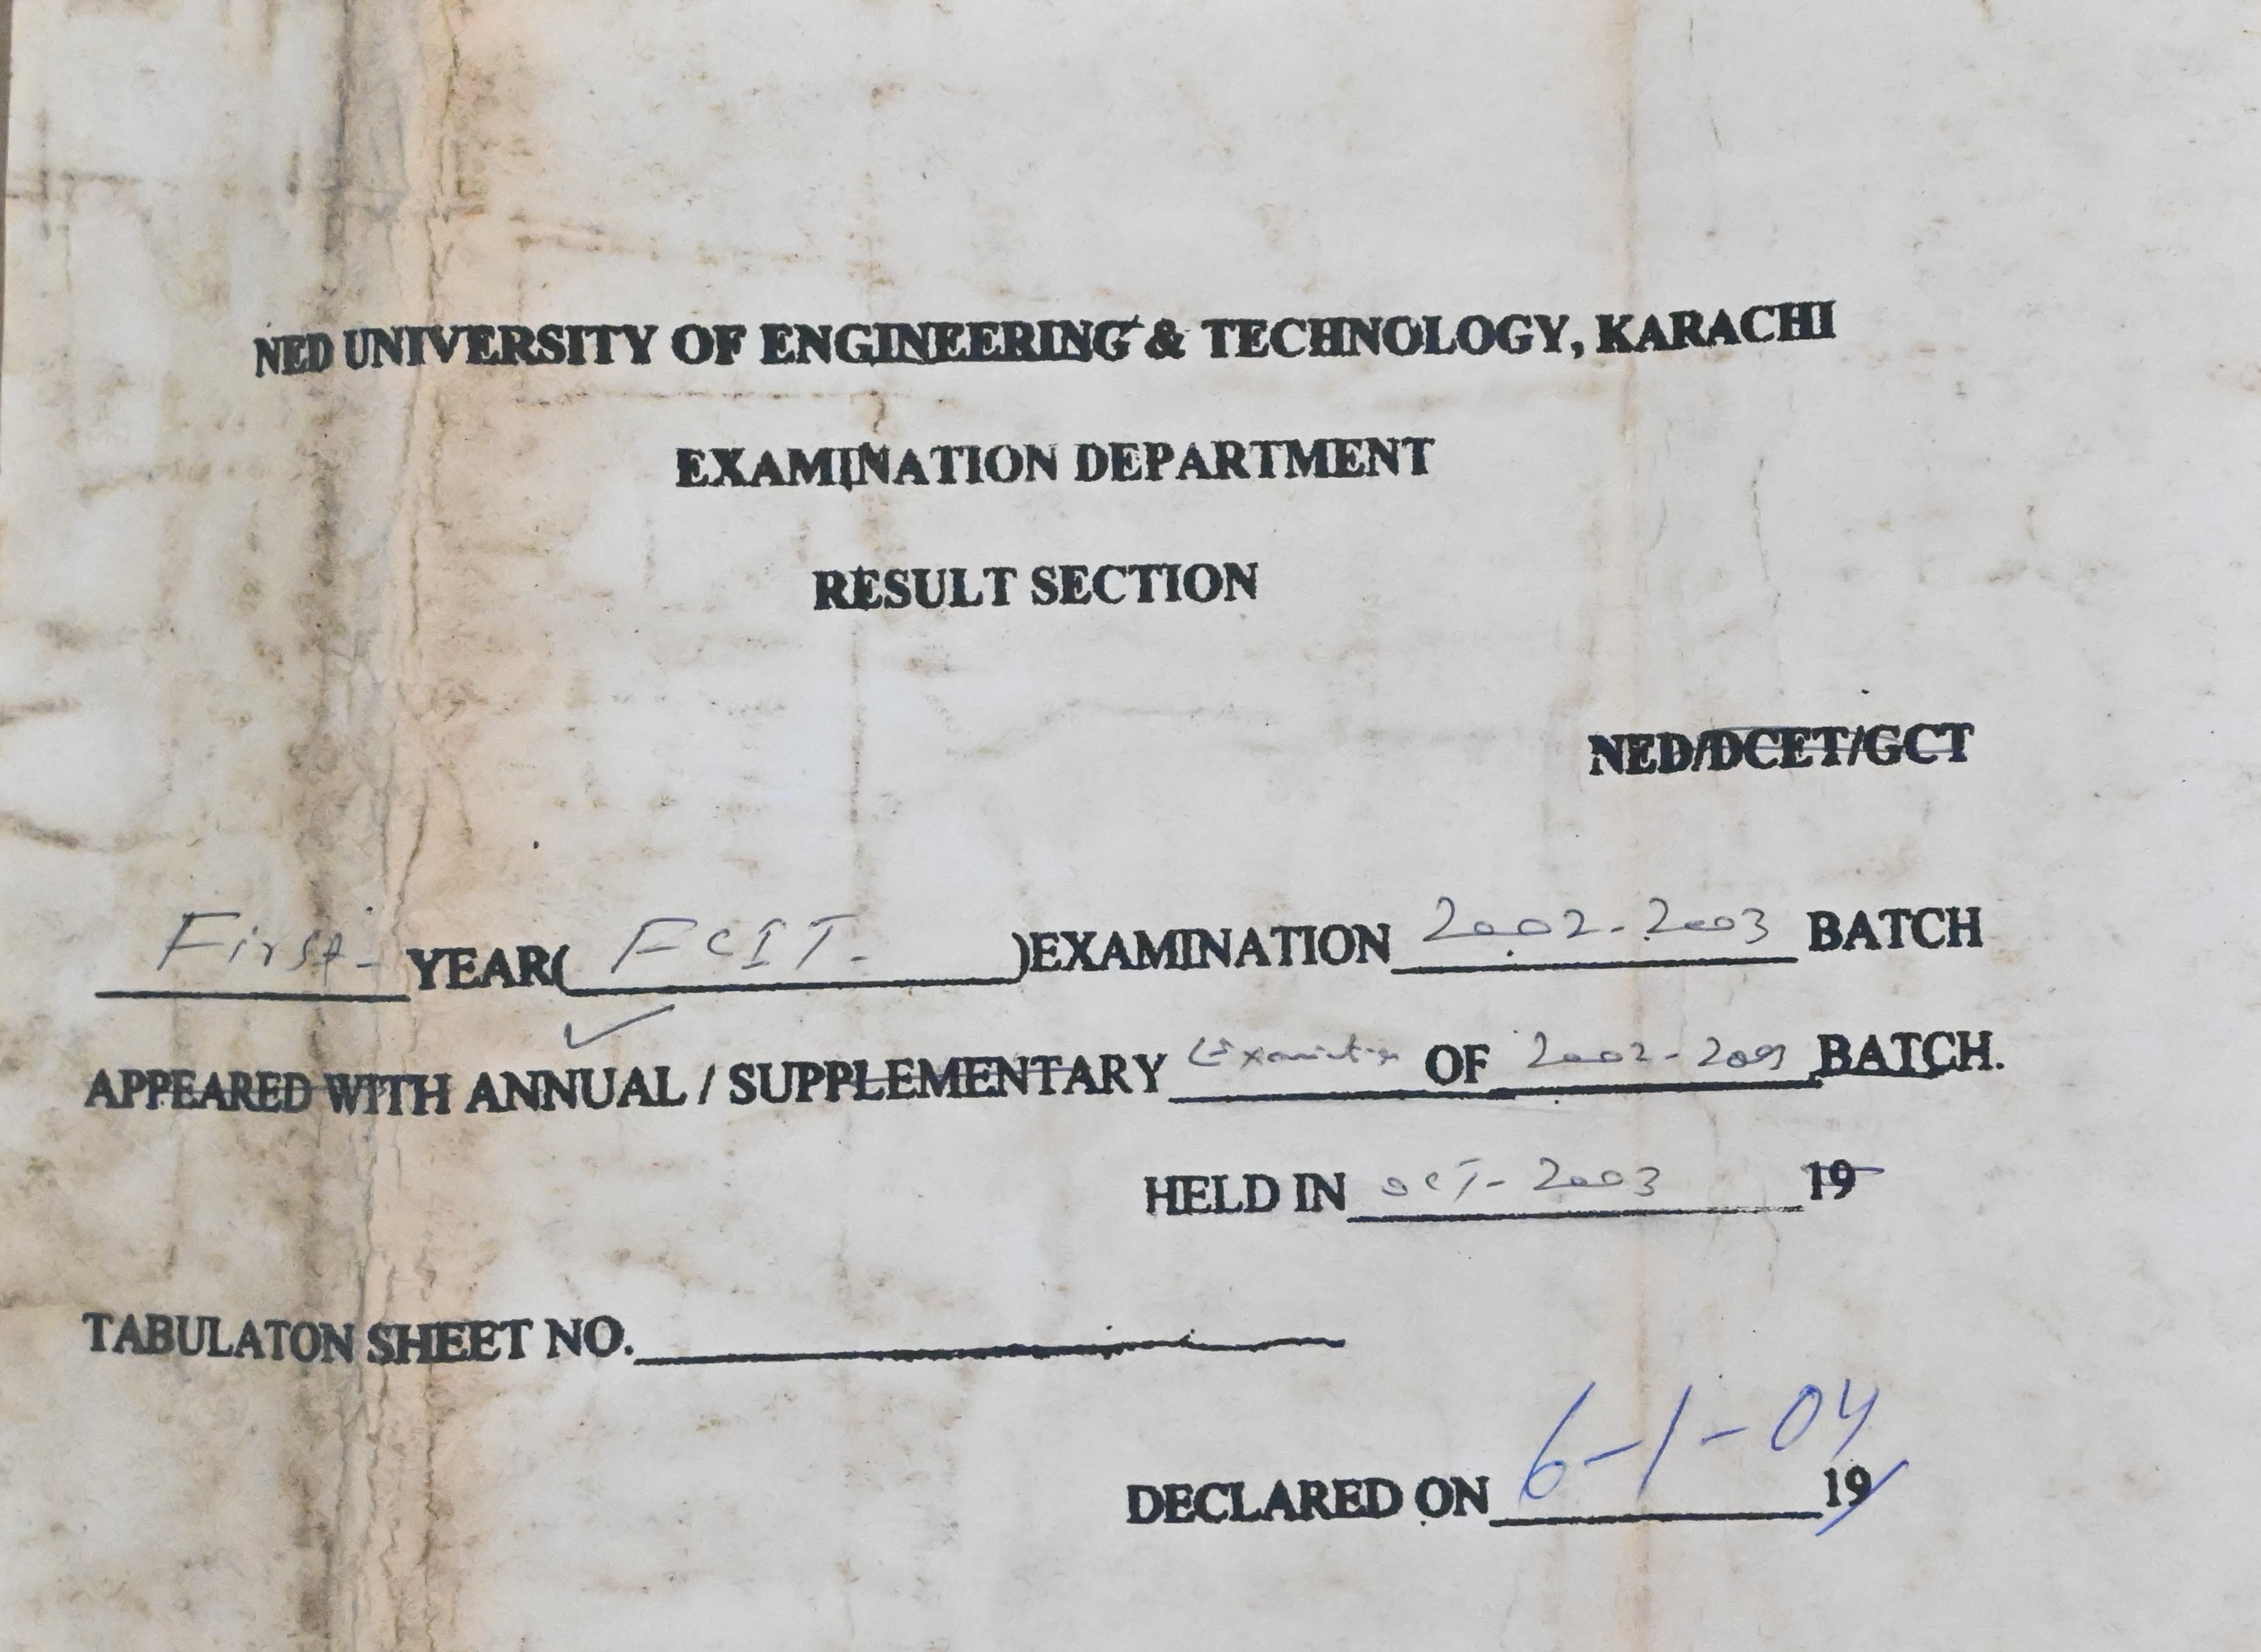 NED UNIVERSITY OF ENGINEERING & TECHNOLOGY, KARACHI
EXAMINATION DEPARTMENT
RESULT SECTION
NED/DCET/GCT
First- YEAR( FCIT. )EXAMINATION 2002-2003 BATCH
APPEARED WITH ANNUAL / SUPPLEMENTARY OF BATCH.
HELD IN OCT-2003 19
TABULATON SHEET NO.
DECLARED ON 6-1-04 19